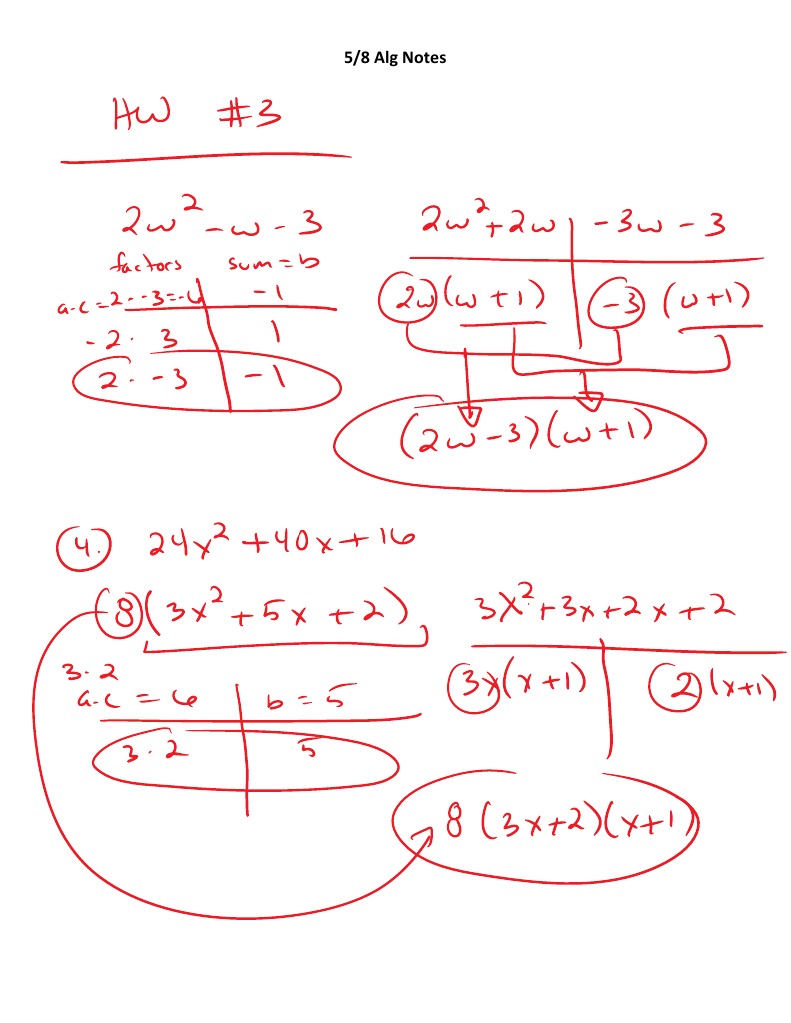 5/8 Alg Notes
HW #3
2w² - w - 3
factors sum = b
a·c = 2·-3 = -6 -1
-2 · 3 1
2 · -3 -1
2w² + 2w | -3w - 3
2w(w + 1) -3(w+1)
(2w - 3)(w + 1)
4. 24x² + 40x + 16
8(3x² + 5x + 2)
3·2
a·c = 6 b = 5
3·2 5
3x² + 3x + 2x + 2
3x(x + 1) 2(x+1)
8(3x+2)(x+1)